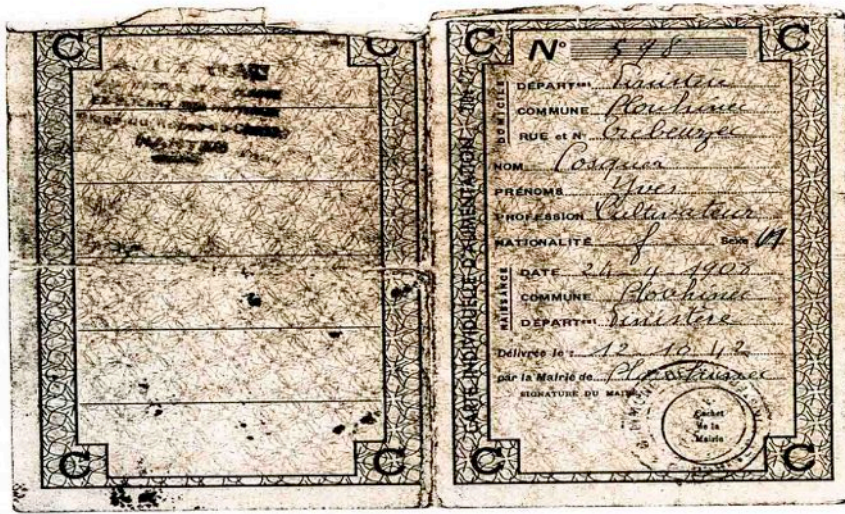 C C
NANTES
C C
CARTE INDIVIDUELLE D'ALIMENTATION
C C
N° 598
DOMICILE
DÉPARTent Finistère
COMMUNE Plouhinec
RUE et N°
NOM Cosquer
PRÉNOMS Yves
PROFESSION Cultivateur
NATIONALITÉ f Sexe M
NAISSANCE
DATE 24-4-1908
COMMUNE Plouhinec
DÉPARTent Finistère
Délivrée le : 12-10-42
par la Mairie de Plouhinec
SIGNATURE DU MAIRE
Cachet
de la
Mairie
C C